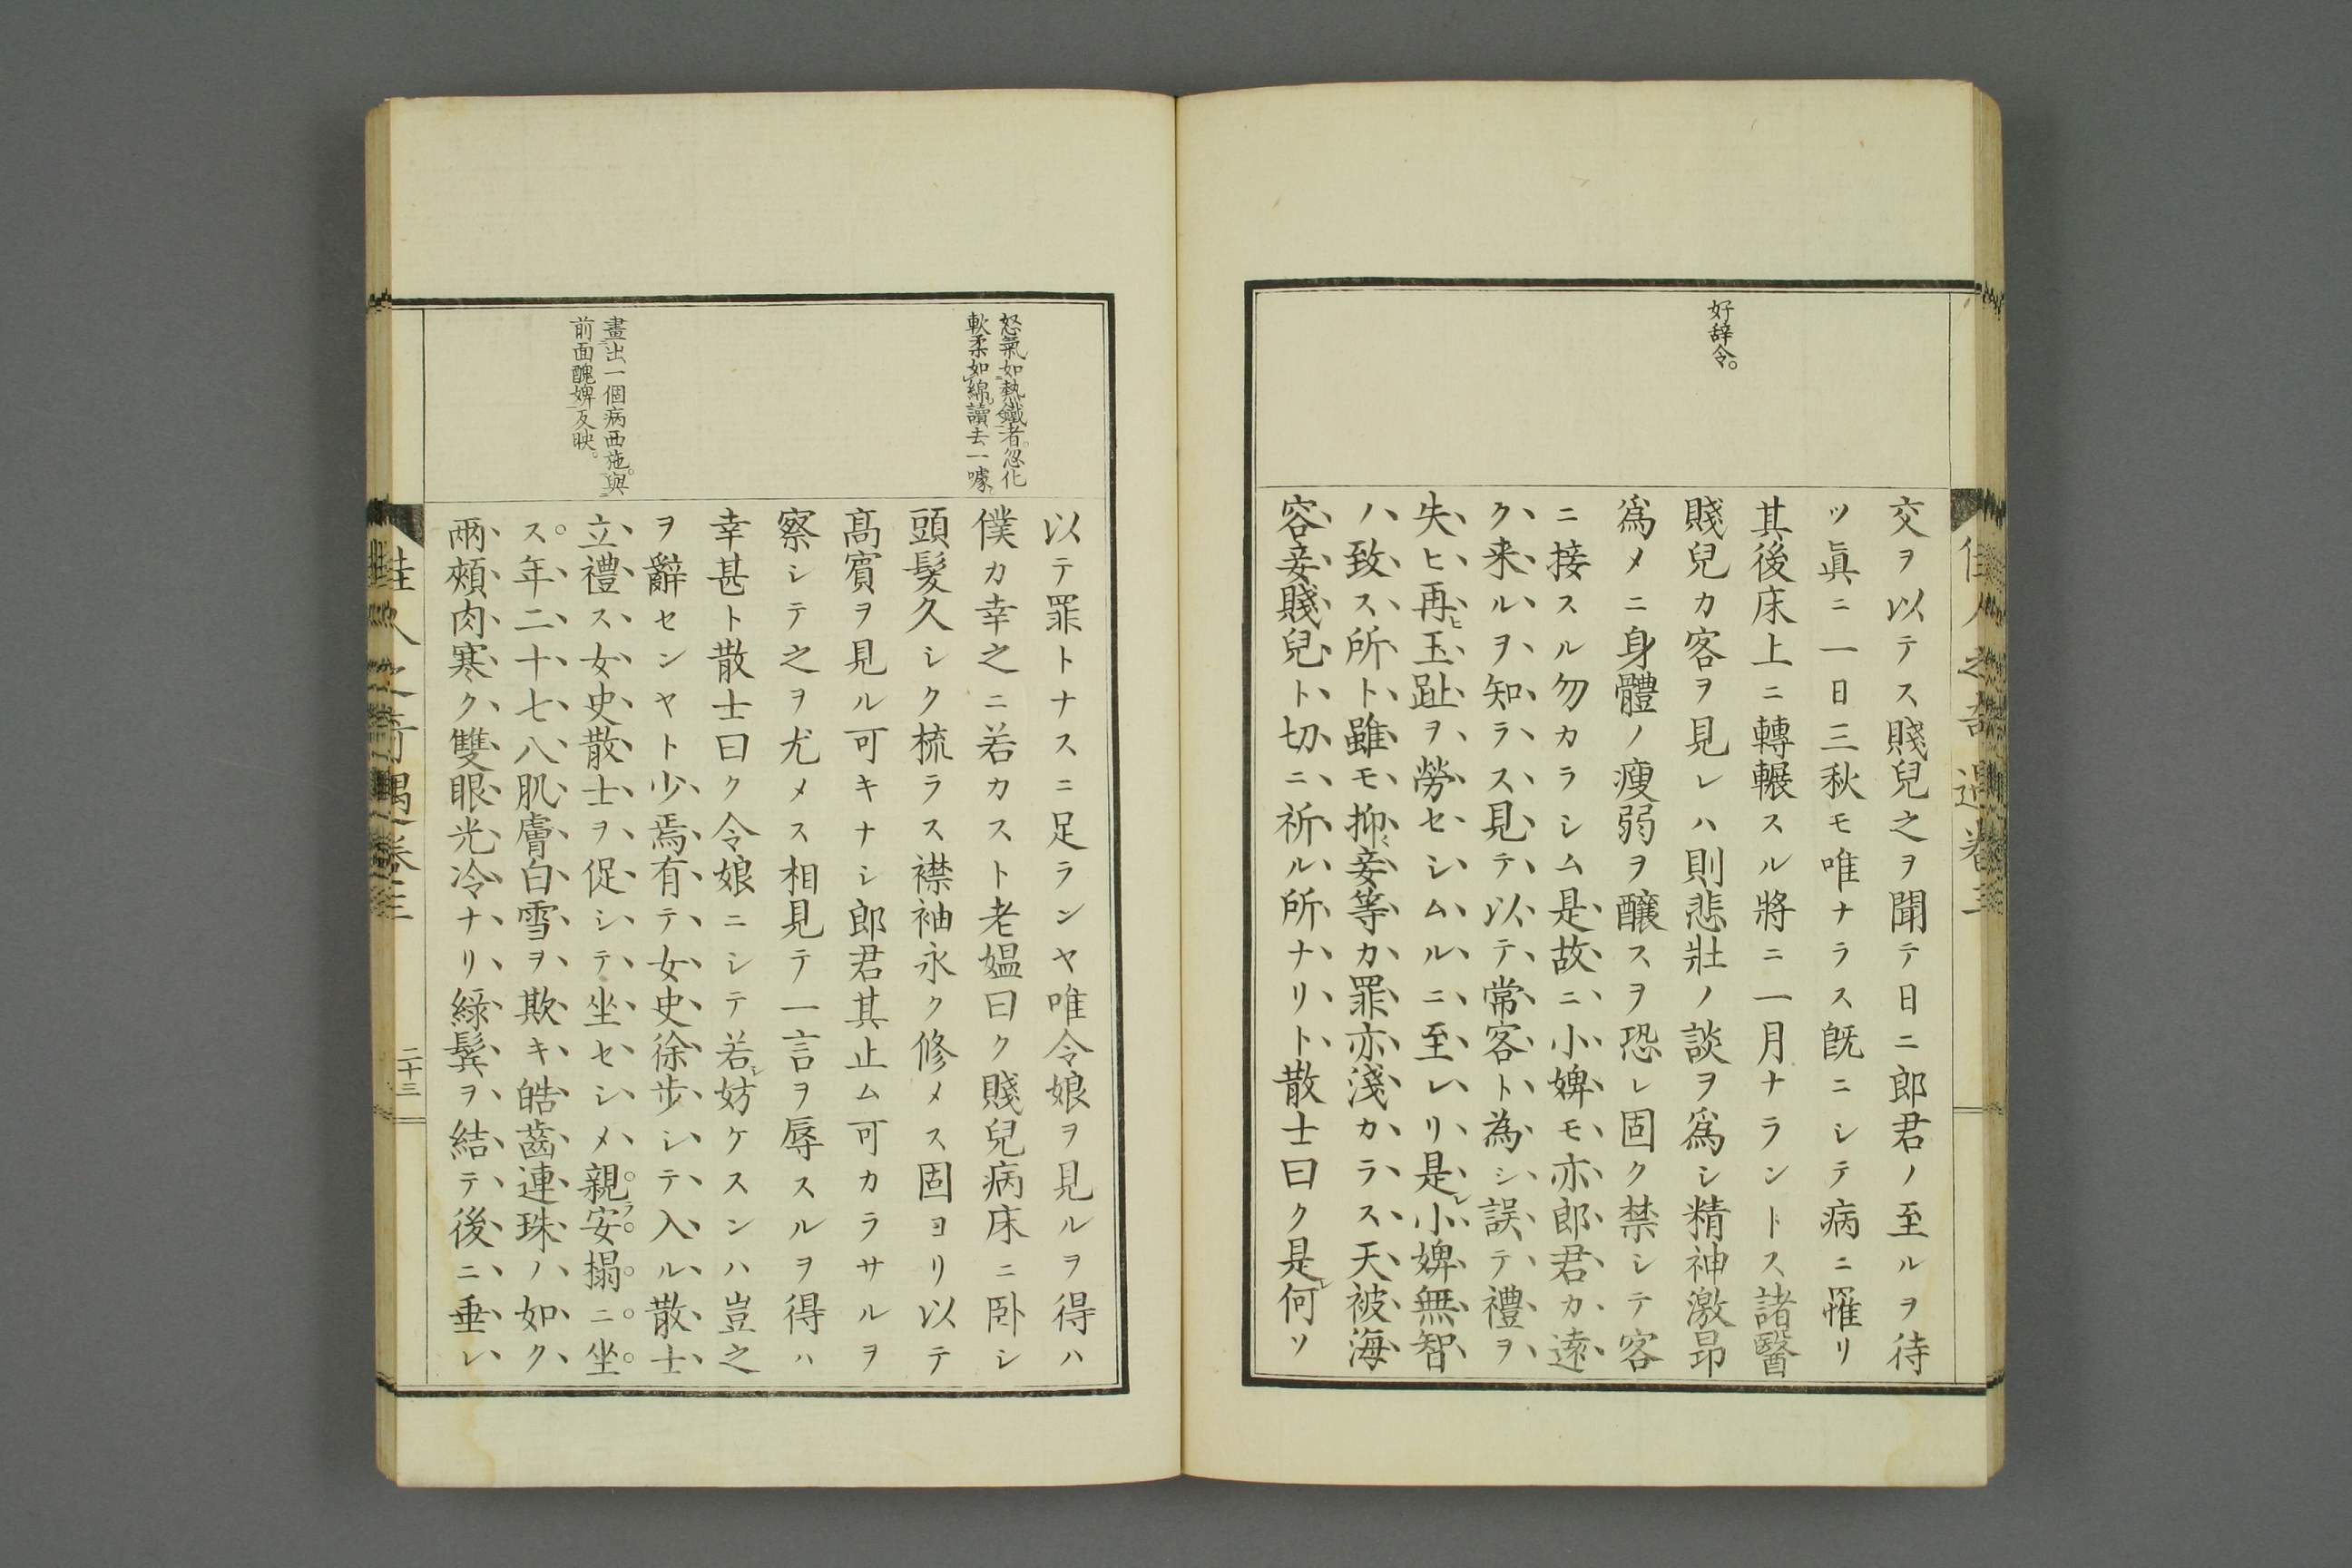 好辞令。
交ヲ以テス賤兒之ヲ聞テ日ニ郎君ノ至ルヲ待
ツ眞ニ一日三秋モ唯ナラス旣ニシテ病ニ罹リ
其後床上ニ轉輾スル將ニ一月ナラントス諸醫
賤兒カ客ヲ見レハ則悲壯ノ談ヲ爲シ精神激昂
爲メニ身體ノ瘦弱ヲ釀スヲ恐レ固ク禁シテ客
ニ接スル勿カラシム是故ニ小婢モ亦郎君カ遠
ク来ルヲ知ラス見テ以テ常客ト為シ誤テ禮ヲ
失ヒ再ヒ玉趾ヲ勞セシムルニ至レリ是レ小婢無智
ノ致ス所ト雖モ抑モ妾等カ罪亦淺カラス天被海
容妾賤兒ト切ニ祈ル所ナリト散士曰ク是レ何ソ
怒氣如熱鐵者。忽化
軟柔如綿。讀去一噱
畫出一個病西施。與
前面醜婢反映。
以テ罪トナスニ足ランヤ唯令娘ヲ見ルヲ得ハ
僕カ幸之ニ若カスト老媼曰ク賤兒病床ニ臥シ
頭髮久シク梳ラス襟袖永ク修メス固ヨリ以テ
髙賓ヲ見ル可キナシ郎君其止ム可カラサルヲ
察シテ之ヲ尤メス相見テ一言ヲ辱スルヲ得ハ
幸甚ト散士曰ク令娘ニシテ若シ妨ケスンハ豈之
ヲ辭センヤト少焉有テ女史徐步シテ入ル散士
立禮ス女史散士ヲ促シテ坐セシメ親ラ安榻ニ坐
ス。年二十七八肌膚白雪ヲ欺キ皓齒連珠ノ如ク
兩頰肉寒ク雙眼光冷ナリ綠鬂ヲ結テ後ニ垂レ
佳人之奇遇卷三
二十三